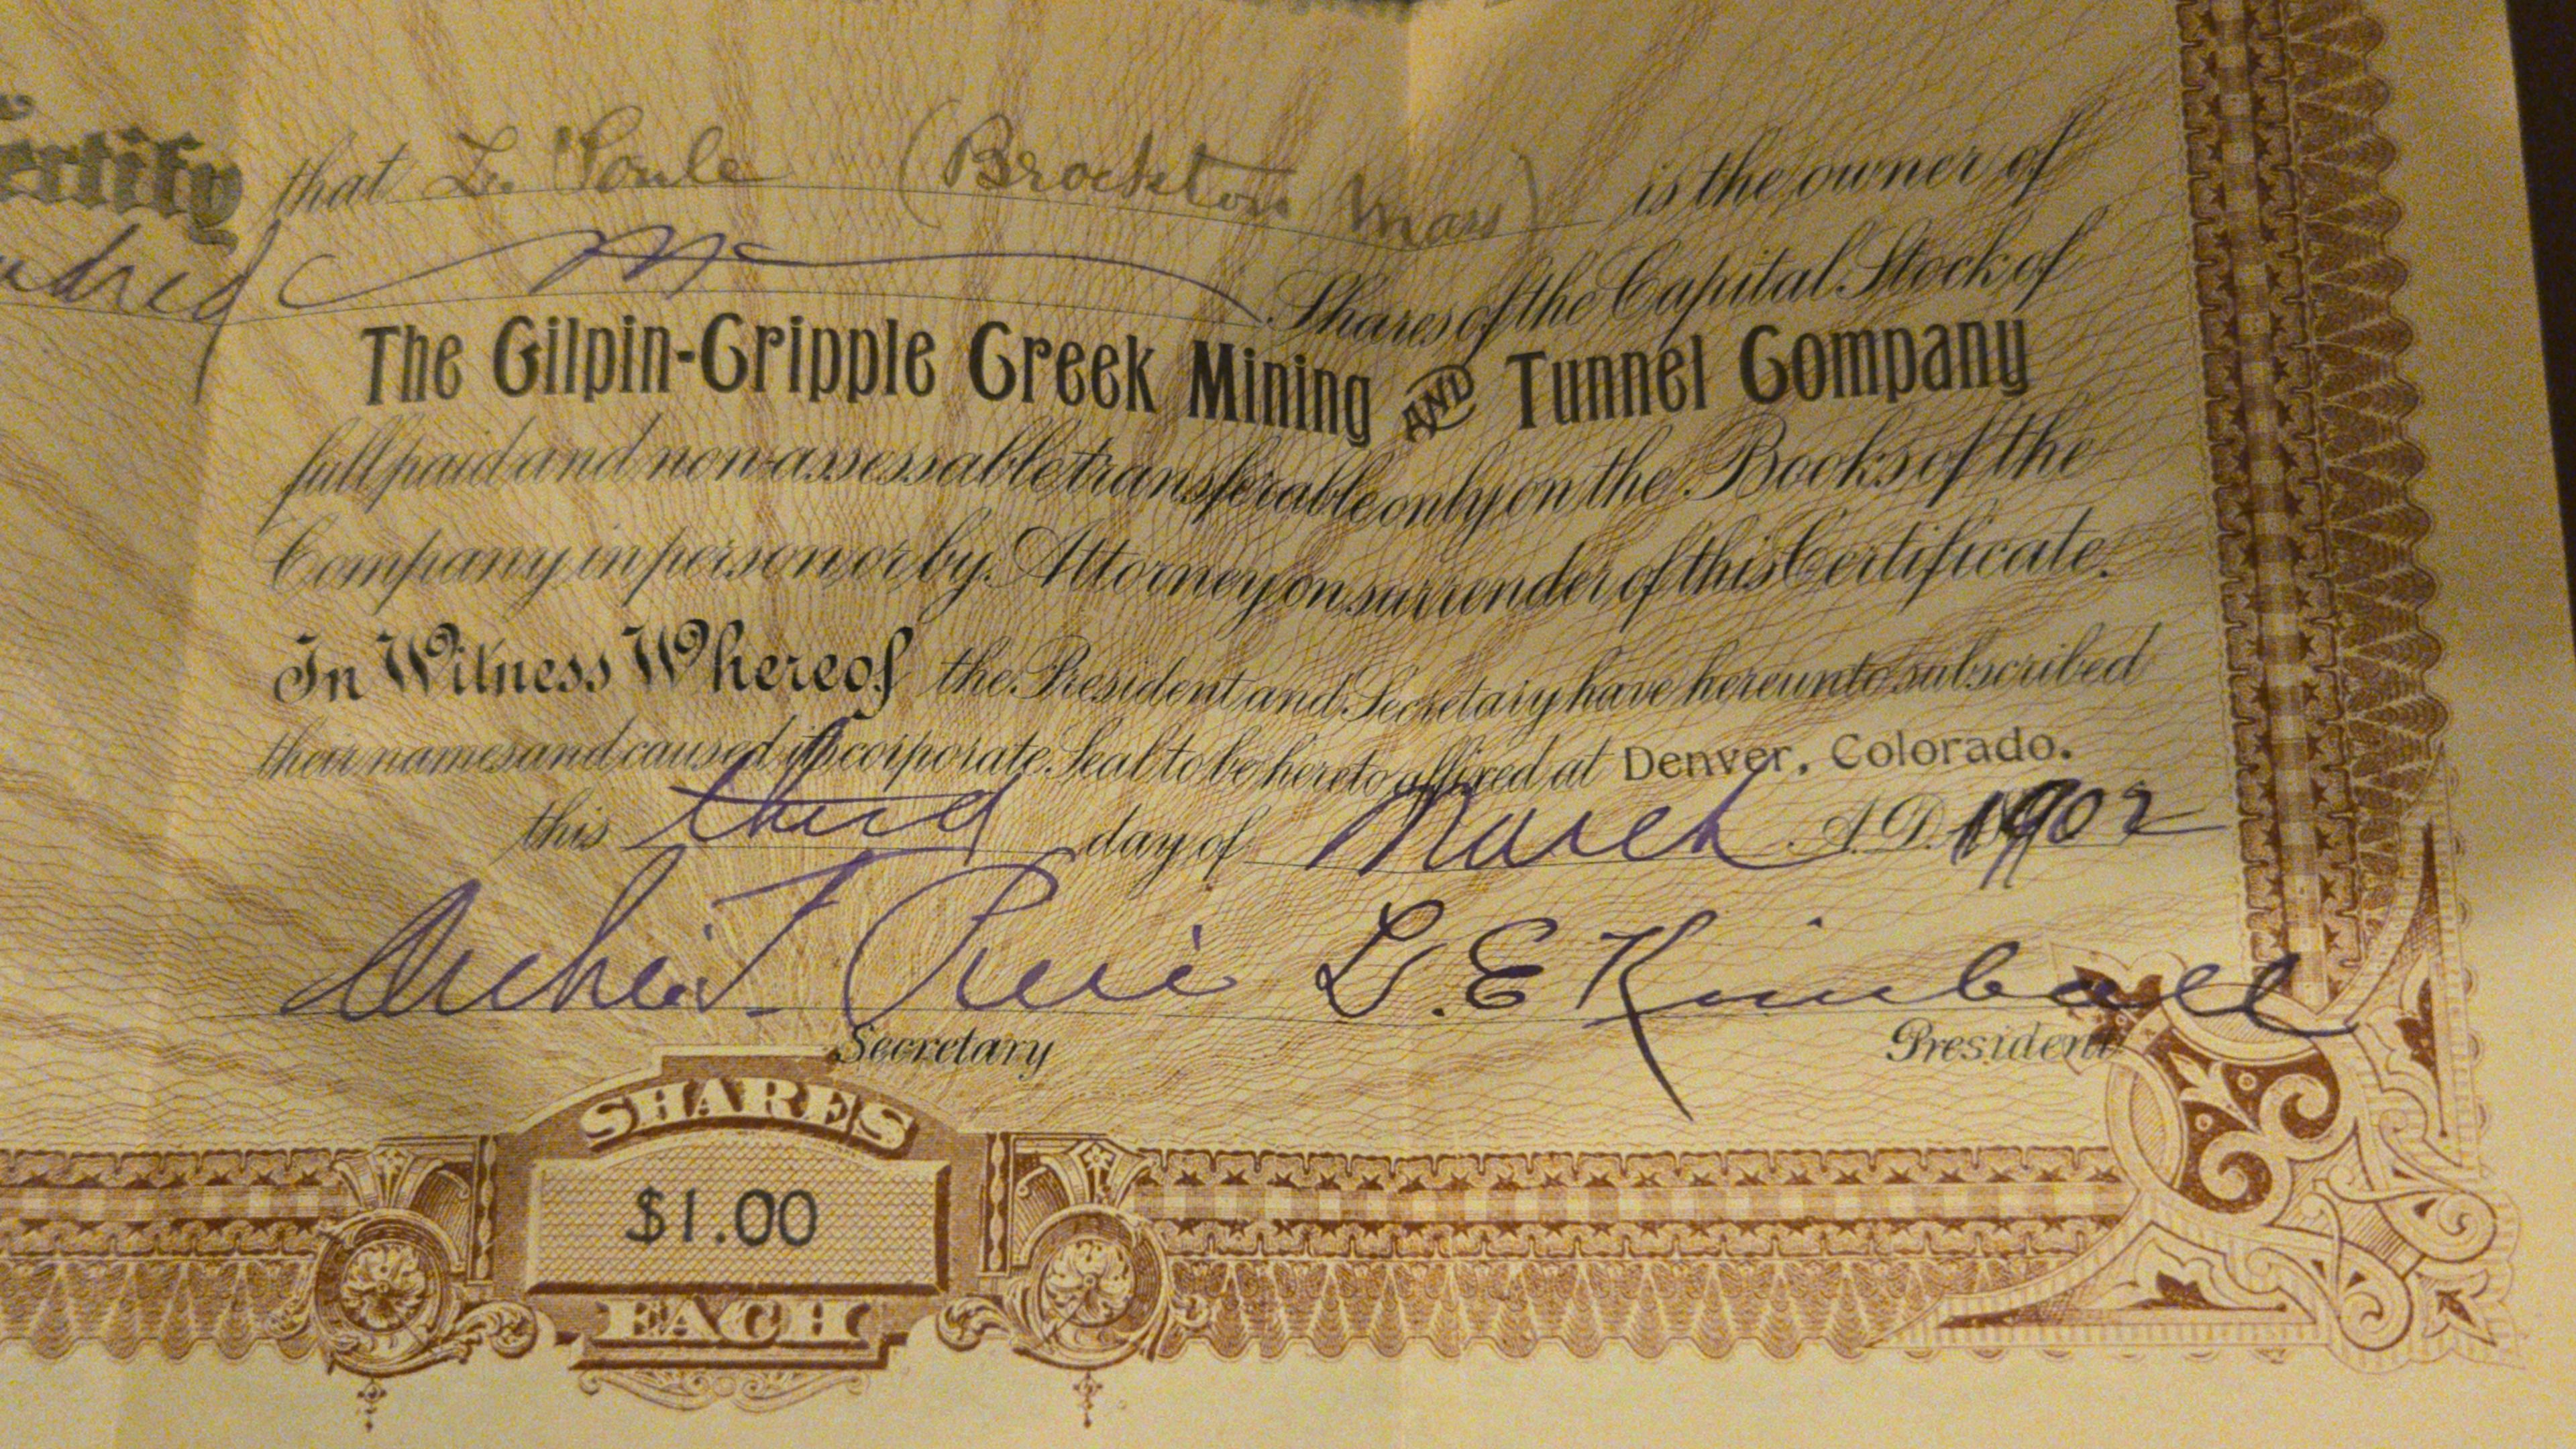 ertify that L. Soule (Brockton Mass) is the owner of
ndred Shares of the Capital Stock of
The Gilpin-Cripple Creek Mining AND Tunnel Company
full paid and non-assessable transferable only on the Books of the
Company in person or by Attorney on surrender of this Certificate.
In Witness Whereof the President and Secretary have hereunto subscribed
their names and caused its corporate Seal to be hereto affixed at Denver, Colorado.
this third day of March A.D. 1902
L. E. Kimball
Secretary President
SHARES
$1.00
EACH